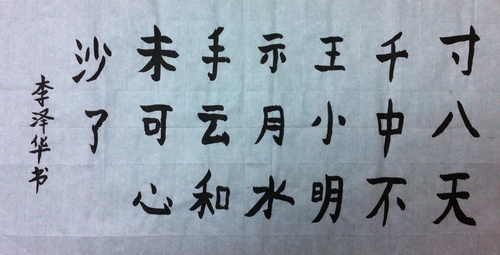 寸八天
千中不
王小明
示月水
手云和
未可心
沙了
李泽华书